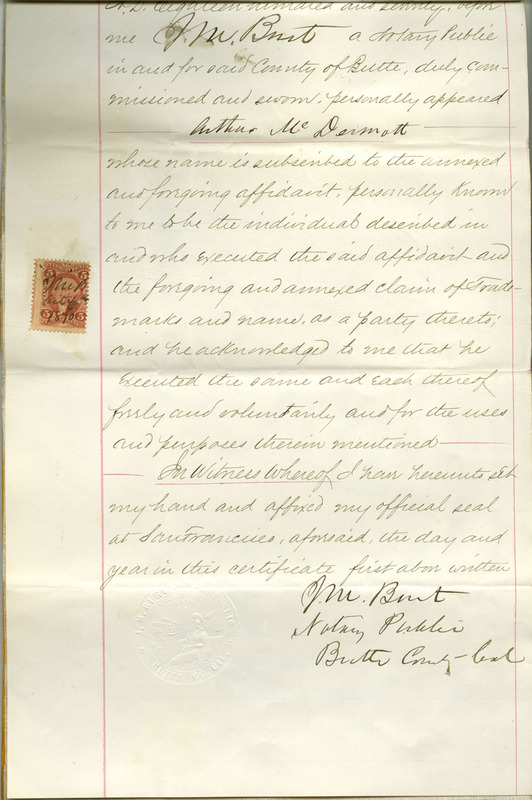 A. D. Eighteen hundred and seventy, before
me J. M. Burt a Notary Public
in and for said County of Butte, duly com-
missioned and sworn, personally appeared
Arthur Mc Dermott
whose name is subscribed to the annexed
and forgoing affidavit, personally known
to me to be the individual described in
and who executed the said affidavit and
the forgoing and annexed claim of Trade-
marks and name, as a party thereto;
and he acknowledged to me that he
executed the same and each thereof
freely and voluntarily and for the uses
and purposes therein mentioned
In Witness Whereof, I have hereunto set
my hand and affixed my official seal
at San Francisco, aforsaid, the day and
year in this certificate first above written
J. M. Burt
Notary Public
Butte County Cal
5 5
J M B
1870